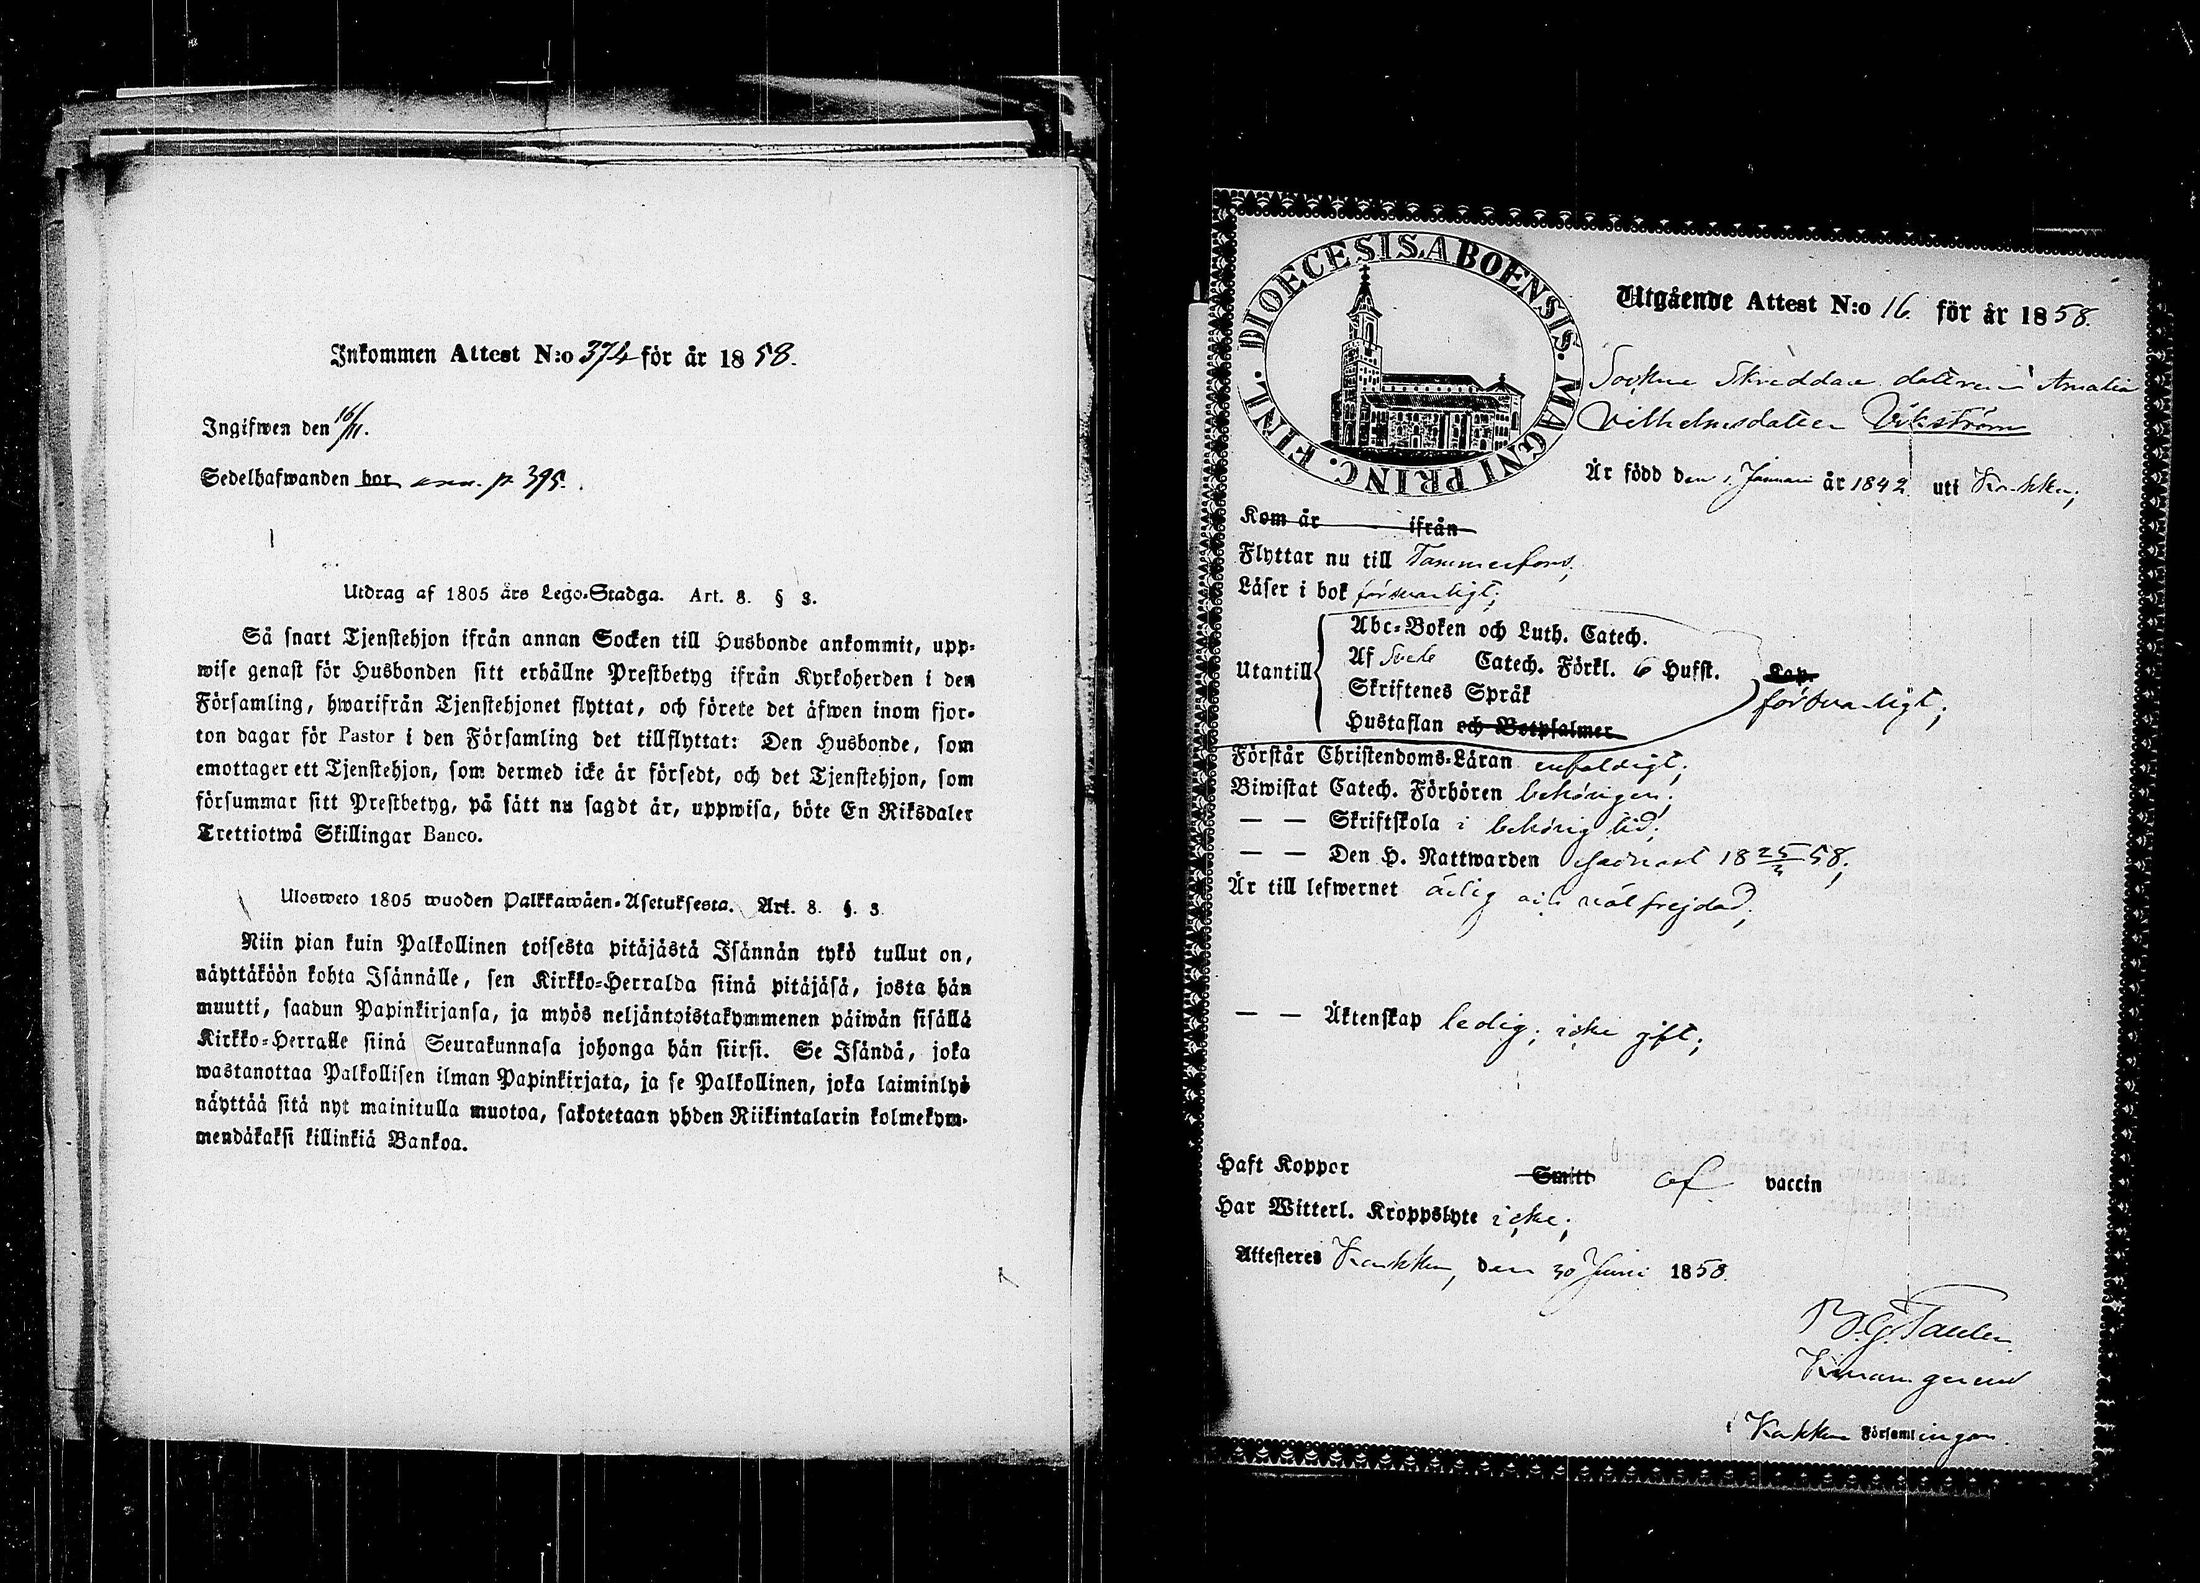 Inkommen Attest N:o 374 för år 1858.
Ingifwen den 16/11.
Sedelhafwanden bor p. 395.
Utdrag af 1805 års Lego-Stadga. Art. 8. § 3.
Så snart Tjenstehjon ifrån annan Socken till Husbonde ankommit, upp-
wise genast för Husbonden sitt erhållne Prestbetyg ifrån Kyrkoherden i den
Församling, hwarifrån Tjenstehjonet flyttat, och förete det äfwen inom fjor-
ton dagar för Pastor i den Församling det tillflyttat: Den Husbonde, som
emottager ett Tjenstehjon, som dermed icke är försedt, och det Tjenstehjon, som
försummar sitt Prestbetyg, på sätt nu sagdt är, uppwisa, böte En Riksdaler
Trettiotwå Skillingar Banco.
Ulosweto 1805 wuoden Palkkawäen-Asetuksesta. Art. 8. §. 3.
Niin pian kuin Palkollinen toisesta pitäjästä Isännän tykö tullut on,
näyttäköön kohta Isännälle, sen Kirkko-Herralda siinä pitäjäsä, josta hän
muutti, saadun Papinkirjansa, ja myös neljäntoistakymmenen päiwän sisällä
Kirkko-Herralle siinä Seurakunnasa johonga hän siirsi. Se Isändä, joka
wastanottaa Palkollisen ilman Papinkirjata, ja se Palkollinen, joka laiminlyö
näyttää sitä nyt mainitulla muotoa, sakotetaan yhden Riikintalarin kolmekym-
mendäkaksi killinkiä Bankoa.
DIOECESIS. ABOENSIS. MAGNI PRINC. FINL.
Utgående Attest N:o 16 för år 1858.
Sockne Skräddare dottren Amalia
Vilhelmsdotter Vikström
Är född den 1. Januari år 1842 uti Karkku;
Kom år ifrån
Flyttar nu till Tammerfors;
Läser i bok försvarligt;
Utantill
Abc-Boken och Luth. Catech.
Af Sveb. Catech. Förkl. 6 Hufst. Kap.
Skriftenes Språk försvarligt;
Hustaflan och Botpsalmer
Förstår Christendoms-Läran enfaldigt;
Biwistat Catech. Förhören behörigen;
— — Skriftskola i behörig tid;
— — Den H. Nattwarden 18 25/3 58;
Är till lefwernet ärlig och välfrejdad;
— — Äktenskap ledig; icke gift;
Haft Koppor Smitt af vaccin
Har Witterl. Kroppslyte icke;
Attesteres Karkku, den 30 Juni 1858.
i Karkku Församlingen.